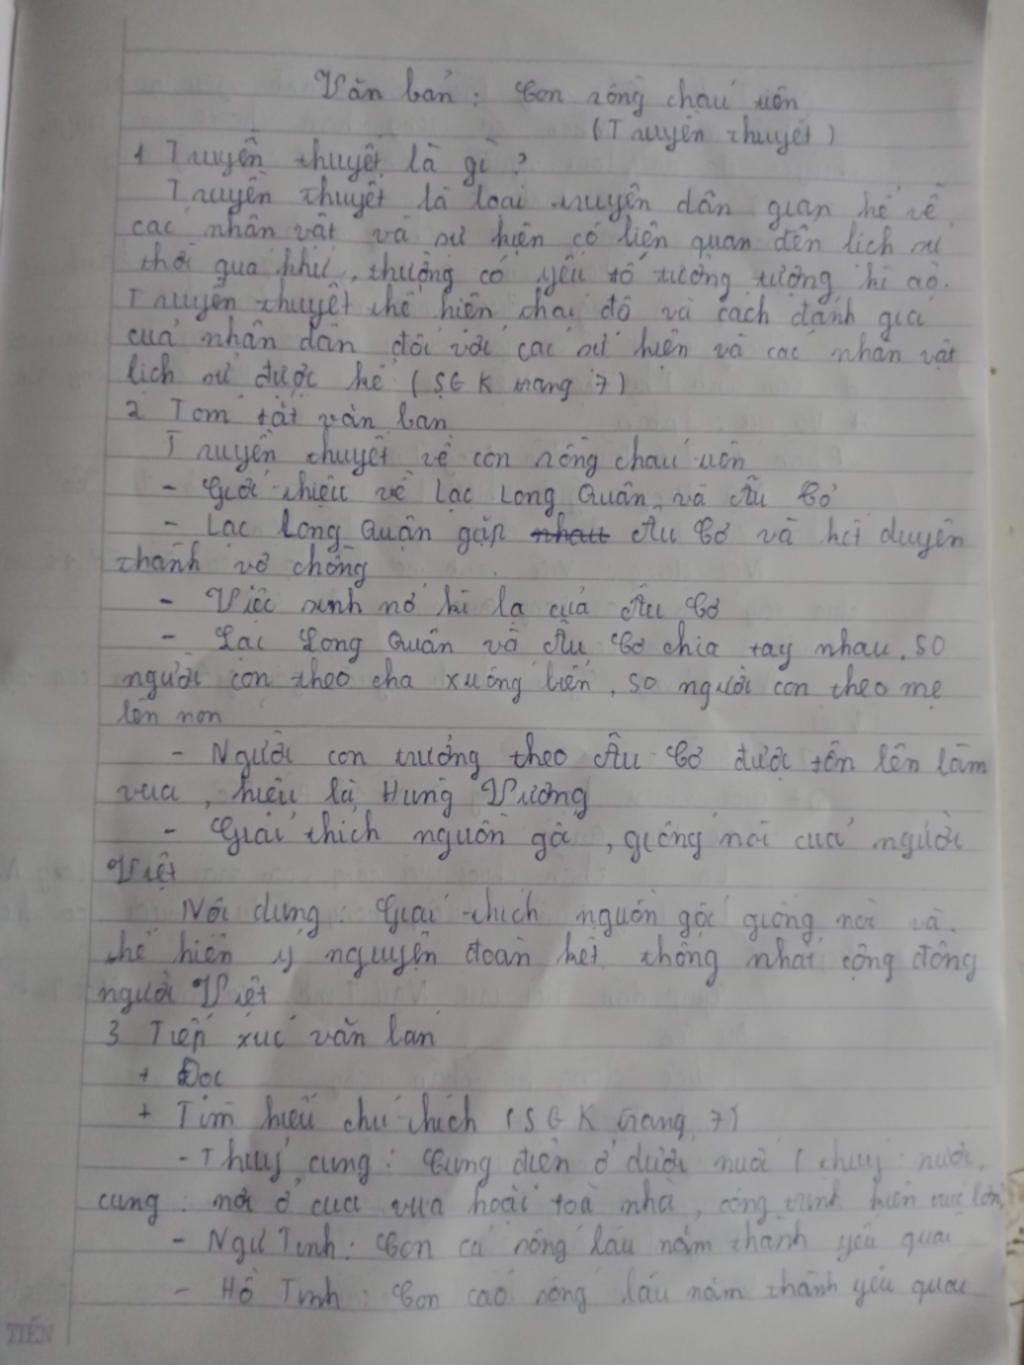 Văn bản : Con rồng cháu tiên
(Truyền thuyết)
1 Truyền thuyết là gì ?
Truyền thuyết là loại truyện dân gian kể về
các nhân vật và sự kiện có liên quan đến lịch sử
thời quá khứ, thường có yếu tố tưởng tượng kì ảo.
Truyền thuyết thể hiện thái độ và cách đánh giá
của nhân dân đối với các sự kiện và các nhân vật
lịch sử được kể (SGK trang 7)
2 Tóm tắt văn bản
Truyền thuyết về con rồng cháu tiên
- Giới thiệu về Lạc Long Quân và Âu Cơ
- Lạc Long Quân gặp nhau Âu Cơ và kết duyên
thành vợ chồng
- Việc sinh nở kì lạ của Âu Cơ
- Lạc Long Quân và Âu Cơ chia tay nhau, 50
người con theo cha xuống biển, 50 người con theo mẹ
lên non
- Người con trưởng theo Âu Cơ được tôn lên làm
vua, hiệu là Hùng Vương
- Giải thích nguồn gốc, giống nòi của người
Việt
Nội dung : Giải thích nguồn gốc giống nòi và
thể hiện ý nguyện đoàn kết thống nhất cộng đồng
người Việt
3 Tiếp xúc văn bản
+ Đọc
+ Tìm hiểu chú thích (SGK trang 7)
- Thuỷ cung : Cung điện ở dưới nước (thuỷ : nước,
cung : nơi ở của vua hoặc toà nhà, công trình kiến trúc lớn)
- Ngư Tinh : Con cá sống lâu năm thành yêu quái
- Hồ Tinh : Con cáo sống lâu năm thành yêu quái
TIẾN